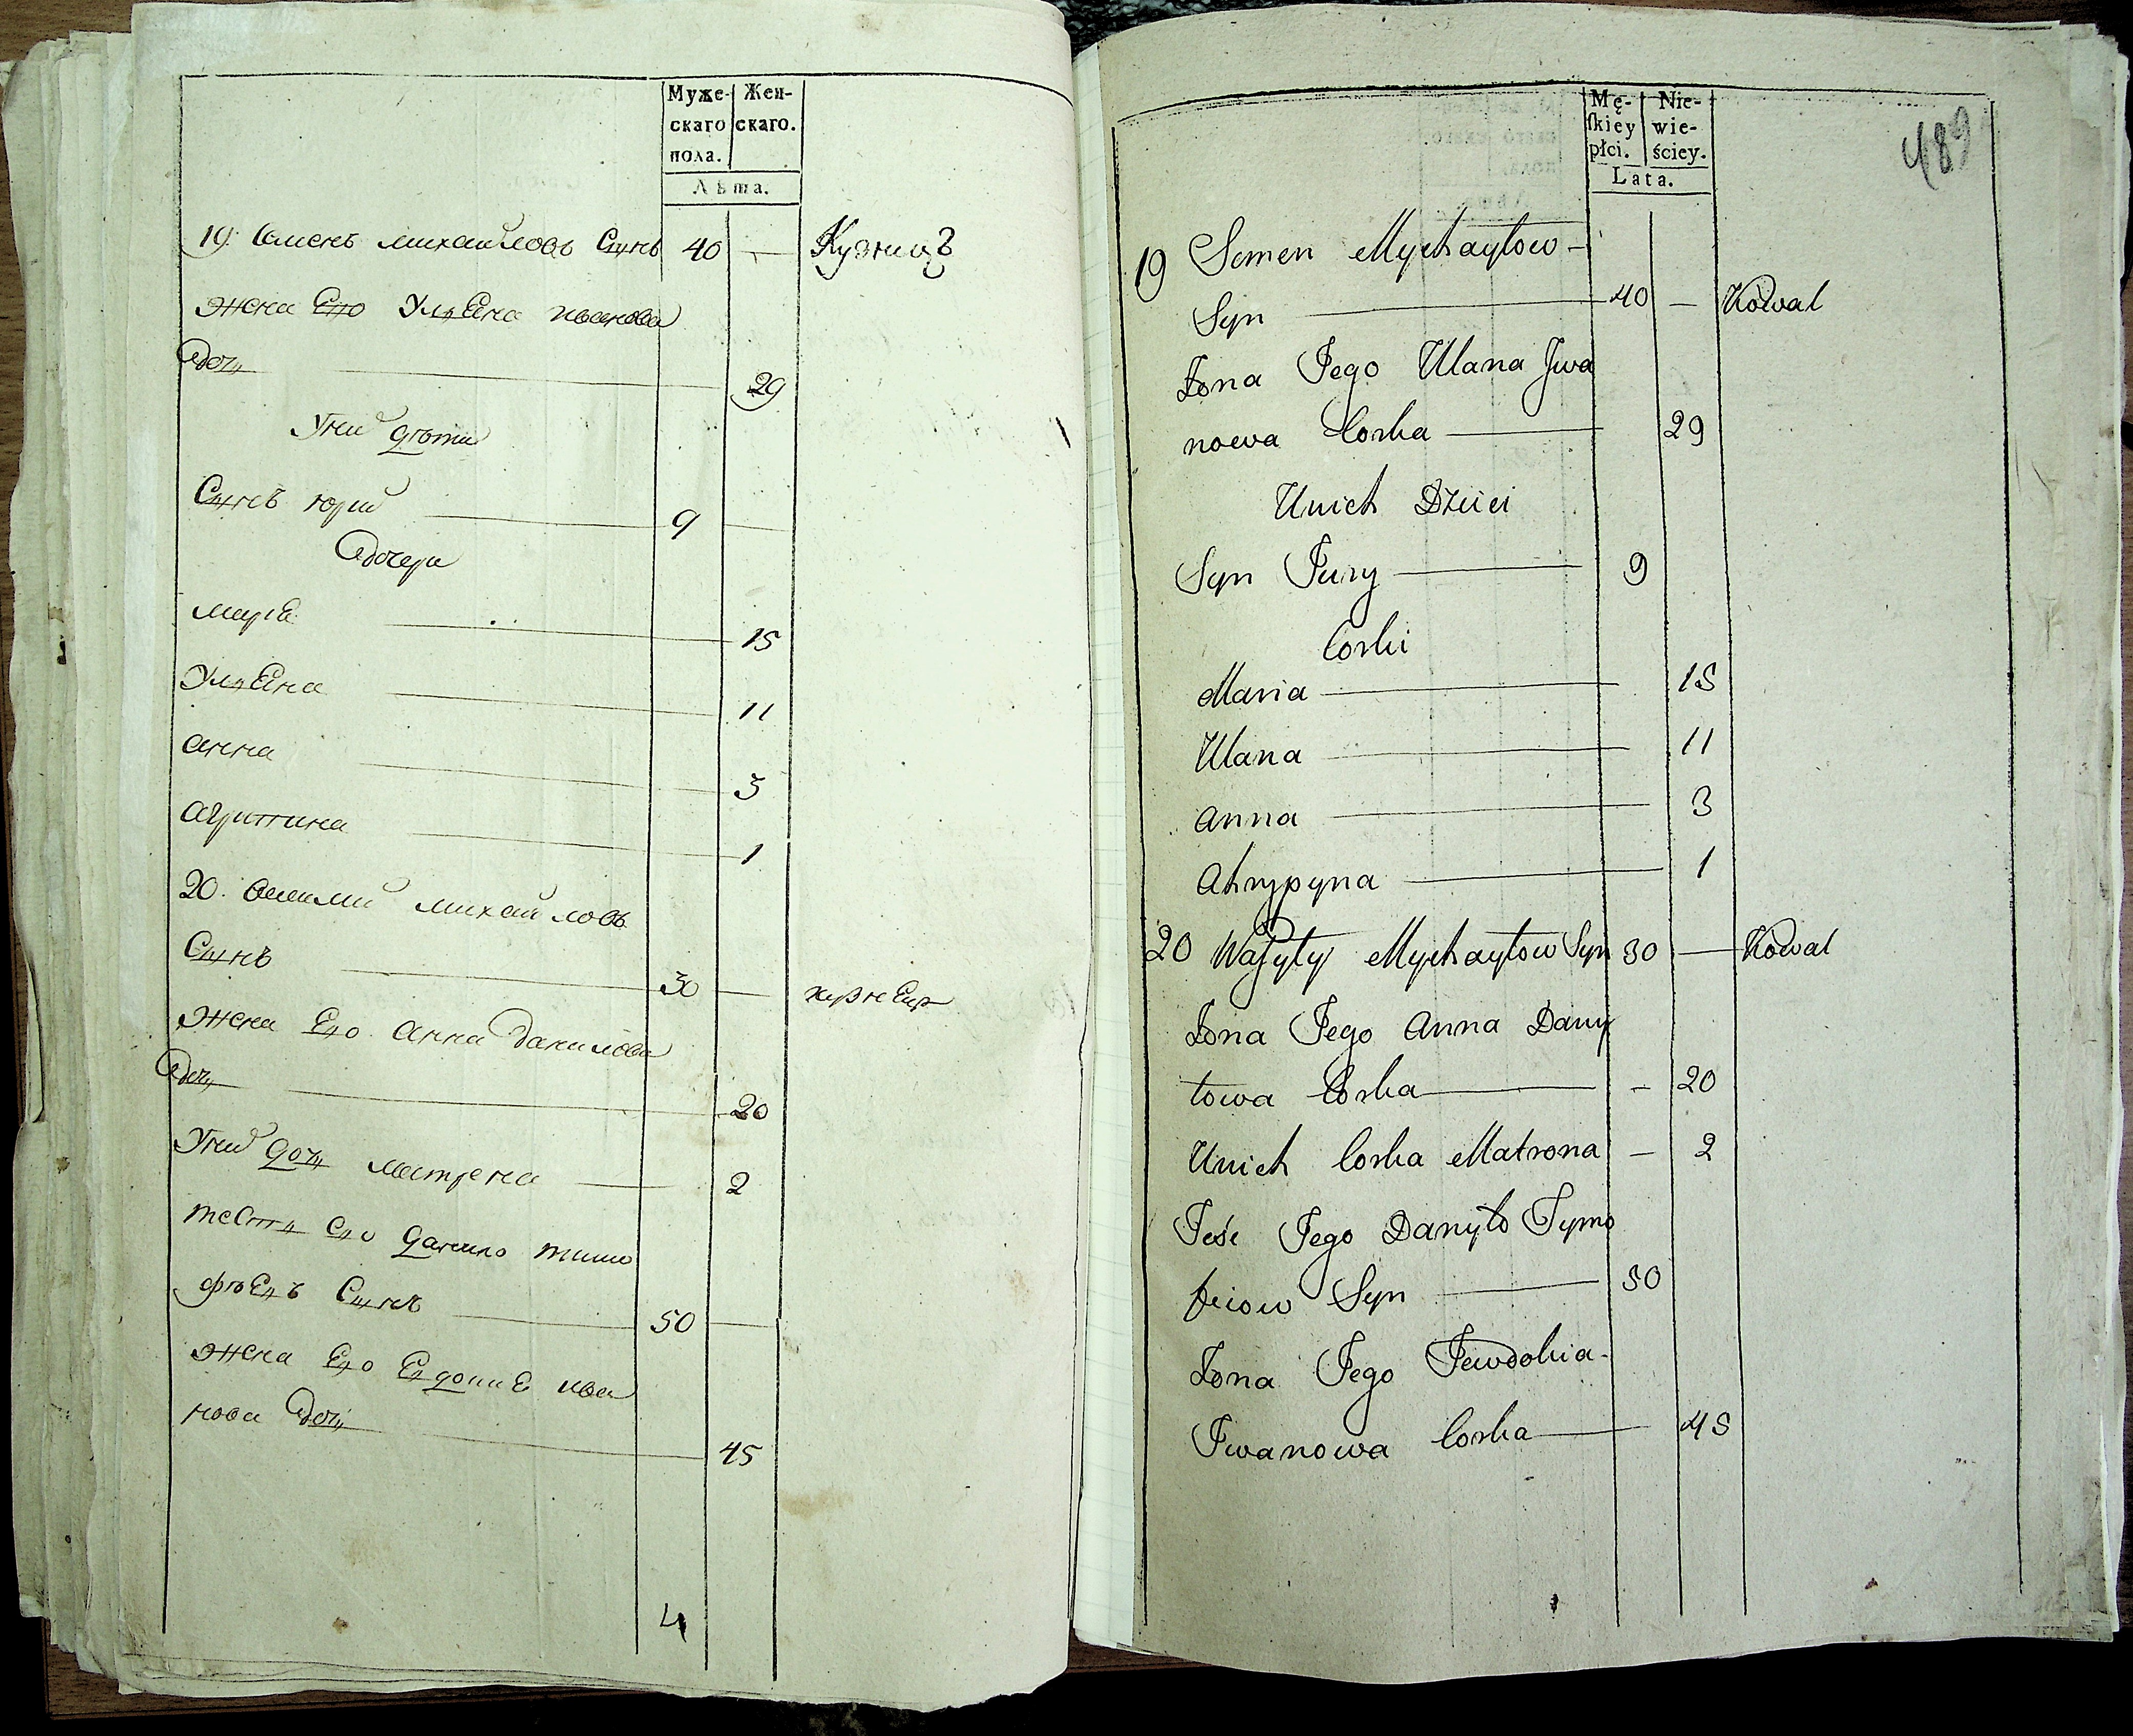 Муже-
скаго
пола.
Жен-
скаго.
Лѣта.
19. Семенъ михайловъ Сынъ 40 — Кузнецъ
жена Его Ульяна иванова
дочь 29
У них дѣти
Сынъ юрий 9 —
дочери
марья 15
Ульяна 11
анна 3
агрипина 1
20. михайловъ
Сынъ 30 —
жена Его анна данилова
дочь 20
У них дочь матрена 2
тесть Его данило тимо
фѣевъ Сынъ 50 —
жена Его Евдокия ива
нова дочь 45
4
Mę-
ſkiey
płci.
Nie-
wie-
ściey.
Lata.
489
19 Semen Mychayłow —
Syn 40 — Kowal
Żona Jego Ulana Jwa
nowa Corka 29
Unich Dzieci
Syn Jury 9
Corki
Maria 15
Ulana 11
Anna 3
Ahrypyna 1
20 Waſyły Mychayłow Syn 30 — Kowal
Żona Jego Anna Dany
łowa Corka — 20
Unich Corka Matrona — 2
Teść Jego Danyło Tymo
feiow Syn 50
Żona Jego Jewdokia
Iwanowa Corka 45